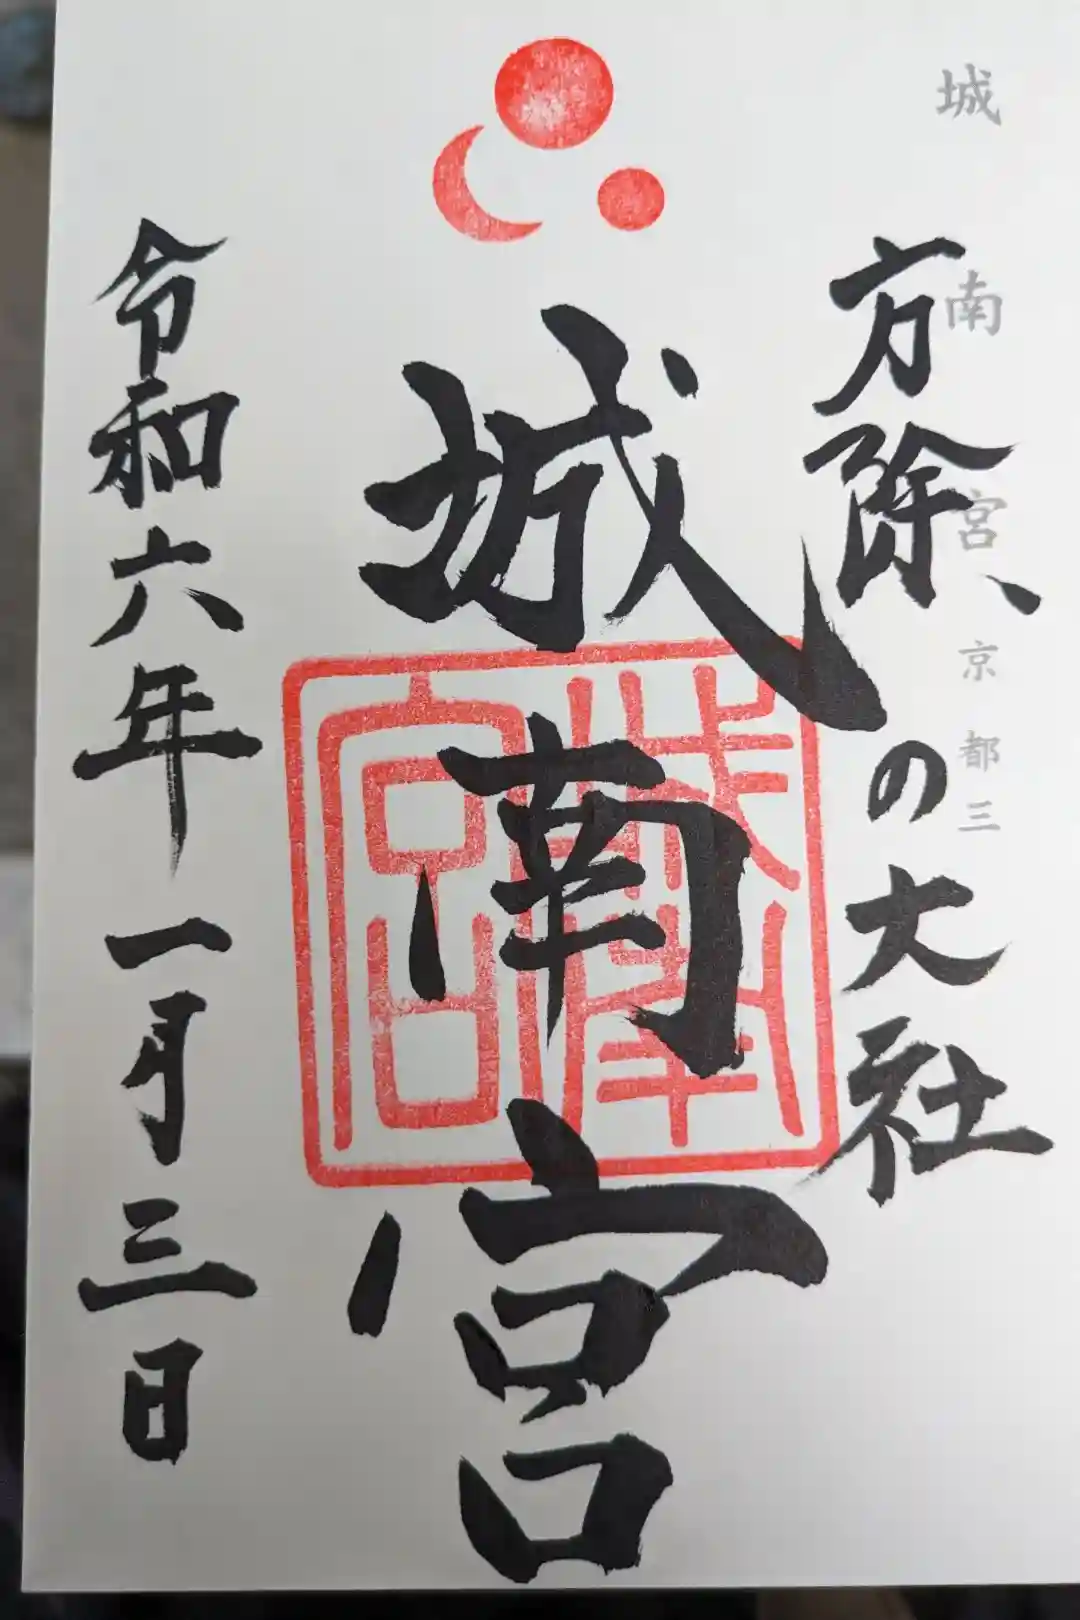 城南宮 京都三
方除の大社
城南宮
城南宮
令和六年一月三日